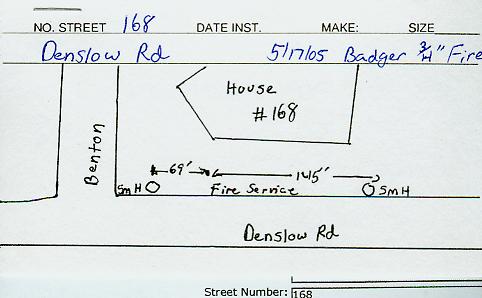 NO. STREET 168 DATE INST. MAKE: SIZE
Denslow Rd 5/17/05 Badger 3/4" Fire
House
#168
Benton
69' 145'
SMH Fire Service SMH
Denslow Rd
Street Number: 168